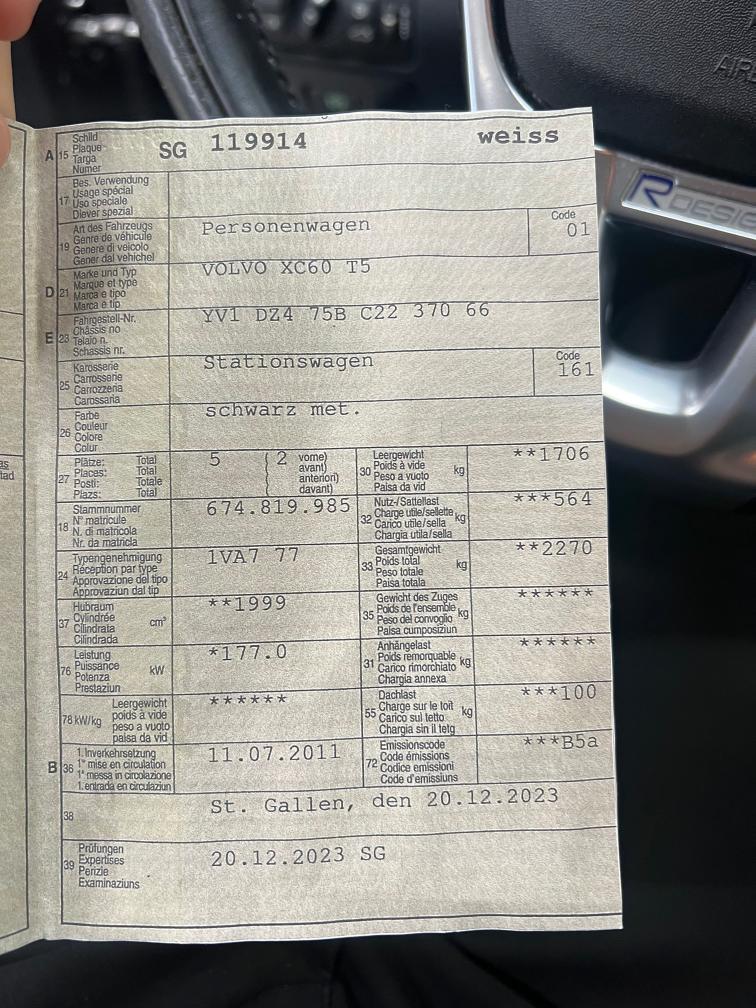 AIR
R DESIGN
as
tad
A 15 Schild SG 119914 weiss
Plaque
Targa
Numer
17 Bes. Verwendung
Usage spécial
Uso speciale
Diever spezial
19 Art des Fahrzeugs Personenwagen Code
Genre de véhicule 01
Genere di veicolo
Gener dal vehichel
D 21 Marke und Typ VOLVO XC60 T5
Marque et type
Marca e tipo
Marca e tip
E 23 Fahrgestell-Nr. YV1 DZ4 75B C22 370 66
Châssis no
Telaio n.
Schassis nr.
25 Karosserie Stationswagen Code
Carrosserie 161
Carrozzeria
Carossaria
26 Farbe schwarz met.
Couleur
Colore
Colur
27 Plätze: Total 5 ( 2 vorne)
Places: Total avant)
Posti: Totale anteriori)
Plazs: Total davant)
30 Leergewicht kg **1706
Poids à vide
Peso a vuoto
Paisa da vid
18 Stammnummer 674.819.985
N° matricule
N. di matricola
Nr. da matricla
32 Nutz-/Sattellast kg ***564
Charge utile/sellette
Carico utile/sella
Chargia utila/sella
24 Typengenehmigung 1VA7 77
Réception par type
Approvazione del tipo
Approvaziun dal tip
33 Gesamtgewicht kg **2270
Poids total
Peso totale
Paisa totala
37 Hubraum cm³ **1999
Cylindrée
Cilindrata
Cilindrada
35 Gewicht des Zuges kg ******
Poids de l'ensemble
Peso del convoglio
Paisa cumposiziun
76 Leistung kW *177.0
Puissance
Potenza
Prestaziun
31 Anhängelast kg ******
Poids remorquable
Carico rimorchiato
Chargia annexa
78 kW/kg Leergewicht ******
poids à vide
peso a vuoto
paisa da vid
55 Dachlast kg ***100
Charge sur le toit
Carico sul tetto
Chargia sin il tetg
B 36 1. Inverkehrsetzung 11.07.2011
1re mise en circulation
1a messa in circolazione
1. entrada en circulaziun
72 Emissionscode ***B5a
Code émissions
Codice emissioni
Code d'emissiuns
38 St. Gallen, den 20.12.2023
39 Prüfungen 20.12.2023 SG
Expertises
Perizie
Examinaziuns